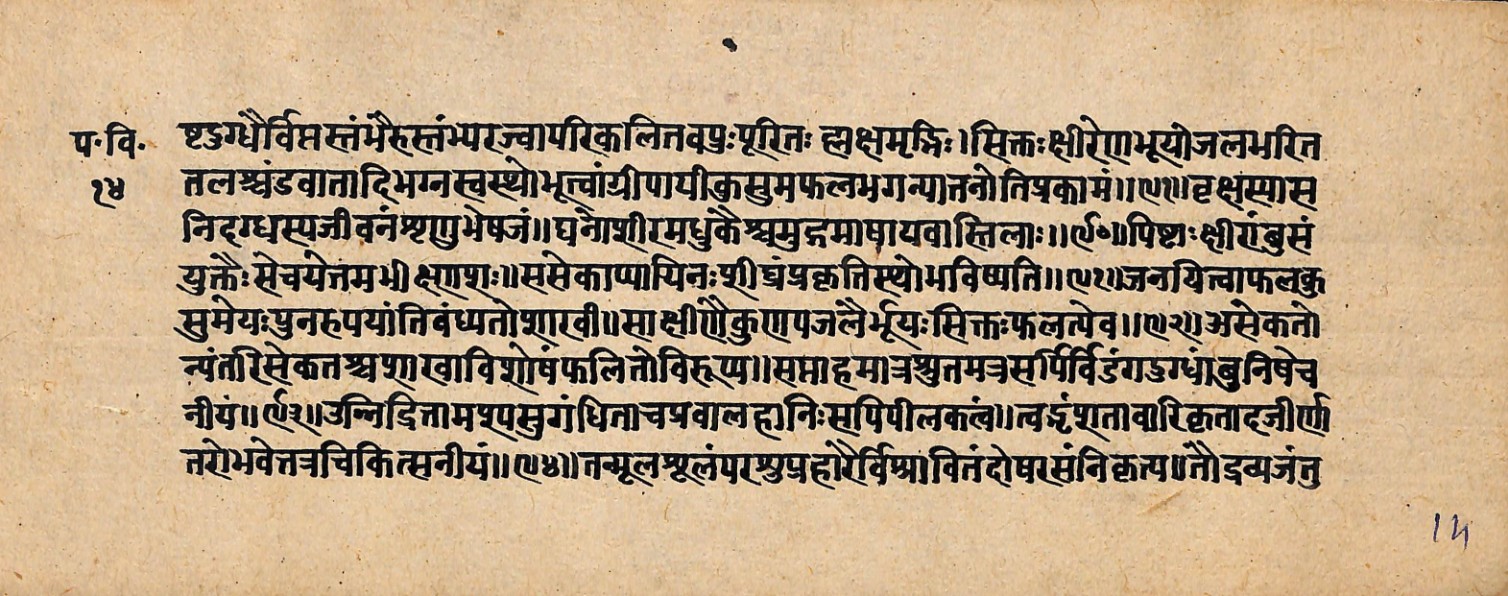 प॰ वि॰
१४
ष्टदुग्धैर्विप्रस्तंभैरुस्तंभ्यरज्वापरिकलितवपुःपूरितः प्लक्षमृद्भिः।सिक्तःक्षीरेणभूयोजलभरित
तलश्चंडवातादिभग्नस्वस्थोभूत्वांघ्रीपायीकुसुमफलभगन्यातनोतिप्रकामं॥८९॥वृक्षस्यास
निदग्धस्यजीवनंशृणुभेषजं॥घनोशीरमधुकैश्चमुद्गमाषायवास्तिलाः॥९०॥पिष्टाःक्षीरांबुसं
युक्तैःसेचयेत्तमभीक्ष्णशः॥ससेकाप्यायिनःशीघ्रंप्रकृतिस्थोभविष्यति॥९१॥जनयित्वाफलकु
सुमेयःपुनरुपयांतिवंध्यतोशाखी॥साक्षीणौकुणपजलैर्भूयःसिक्तःफलत्येव॥९२॥असेकतो
न्यंतरिसेकतश्चशाखाविशोषंफलितोविरूप्य॥सप्ताहमात्रश्रुतमत्रसर्पिर्विडंगदुग्धांबुनिषेच
नीयं॥९३॥उन्निद्रितामश्यसुगंधिताचप्रवालहानिःसपिपीलकत्वं॥त्वद्भ्रंशतावारिकृतादजीर्णा
तरोभवेत्तत्रचिकित्सनीयं॥९४॥तन्मूलशूलंपरशुप्रहारैर्विस्रावितंदोषरसंनिकृत्य॥तौद्रव्यजंतु
14